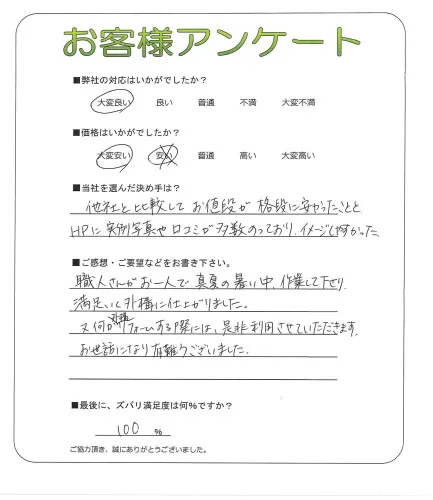 お客様アンケート
■弊社の対応はいかがでしたか？
大変良い 良い 普通 不満 大変不満
■価格はいかがでしたか？
大変安い 安い 普通 高い 大変高い
■当社を選んだ決め手は？
他社と比較してお値段が格段に安かったことと
HPに実例写真や口コミが多数のっており、イメージし易かった。
■ご感想・ご要望などをお書き下さい。
職人さんがお一人で真夏の暑い中、作業して下さり
満足いく外構に仕上がりました。
又何か外構リフォームする際には、是非利用させていただきます。
お世話になり有難うございました。
■最後に、ズバリ満足度は何%ですか？
100 %
ご協力頂き、誠にありがとうございました。